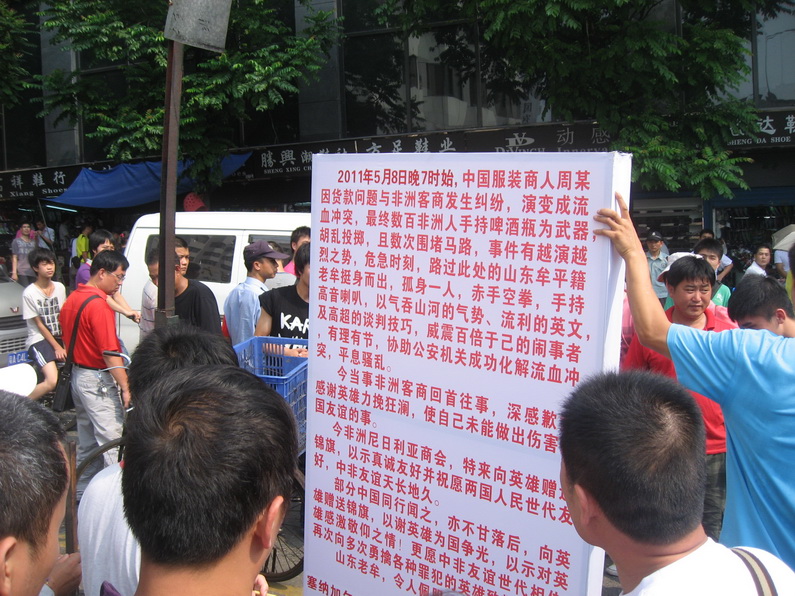 2011年5月8日晚7时始,中国服装商人周某
因货款问题与非洲客商发生纠纷,演变成流
血冲突,最终数百非洲人手持啤酒瓶为武器
胡乱投掷,且数次围堵马路,事件有越演越
烈之势,危急时刻,路过此处的山东牟平籍
老牟挺身而出,孤身一人,赤手空拳,手持
高音喇叭,以气吞山河的气势、流利的英文,
及高超的谈判技巧,威震百倍于己的闹事者
,有理有节,协助公安机关成功化解流血冲
突,平息骚乱。
今当事非洲客商回首往事,深感歉
感谢英雄力挽狂澜,使自己未能做出伤害
国友谊的事。
今非洲尼日利亚商会,特来向英雄赠送
锦旗,以示真诚友好并祝愿两国人民世代友
好,中非友谊天长地久。
部分中国同行闻之,亦不甘落后,向英
雄赠送锦旗,以谢英雄为国争光,以示对英
雄感激敬仰之情!更愿中非友谊世代相
再次向多次勇擒各种罪犯的英雄
山东老牟,令人佩
塞纳加
腾興潮鞋
SHENG XING CH
市足鞋业
DAVINCH
动感
祥鞋行
达鞋
SHENG DA SHOE
KAR